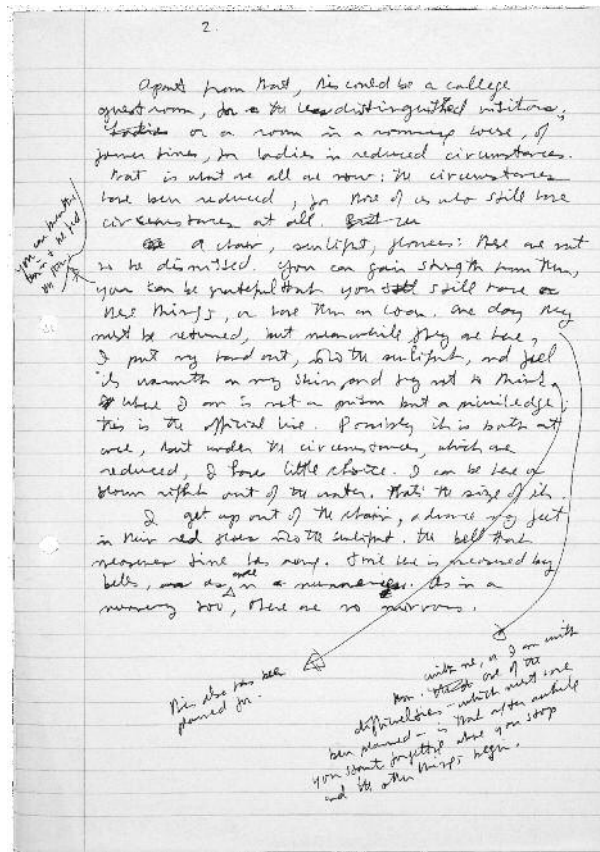 2.
Apart from that, this could be a college
guest room, for the less distinguished visitors,
or a room in a rooming house, of
former times, for ladies in reduced circumstances.
That is what we all are now: the circumstances
have been reduced, for those of us who still have
circumstances at all.
A chair, sunlight, flowers: these are not
to be dismissed. You can gain strength from them,
you can be grateful that you still have
these things, or have them on loan. One day they
must be returned, but meanwhile they are here,
I put my hand out, into the sunlight, and feel
its warmth on my skin and try not to think.
Where I am is not a prison but a priviledge;
this is the official line. Possibly it is both at
once, but under the circumstances, which are
reduced, I have little choice. I can be here or
blown right out of the water. That's the size of it.
I get up out of the chair, advance my feet
in their red shoes into the sunlight. The bell that
measures time has rung. Time here is measured by
bells, as once in nunneries. As in a
nunnery too, there are no mirrors.
you can breathe
the bed
This also has been
planned for.
with me, or I am with
them. one of the
difficulties - which must have
been planned - is that after awhile
you start forgetting where you stop
and the other things begin.